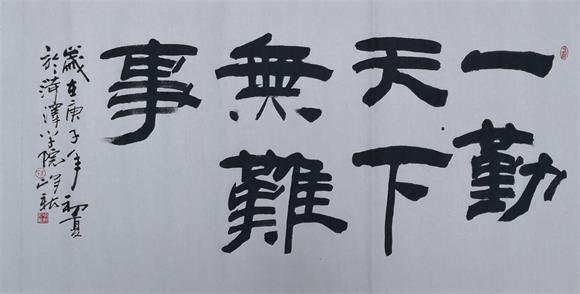 一勤
天下
無難
事
歲在庚子年初夏
於菏澤学院